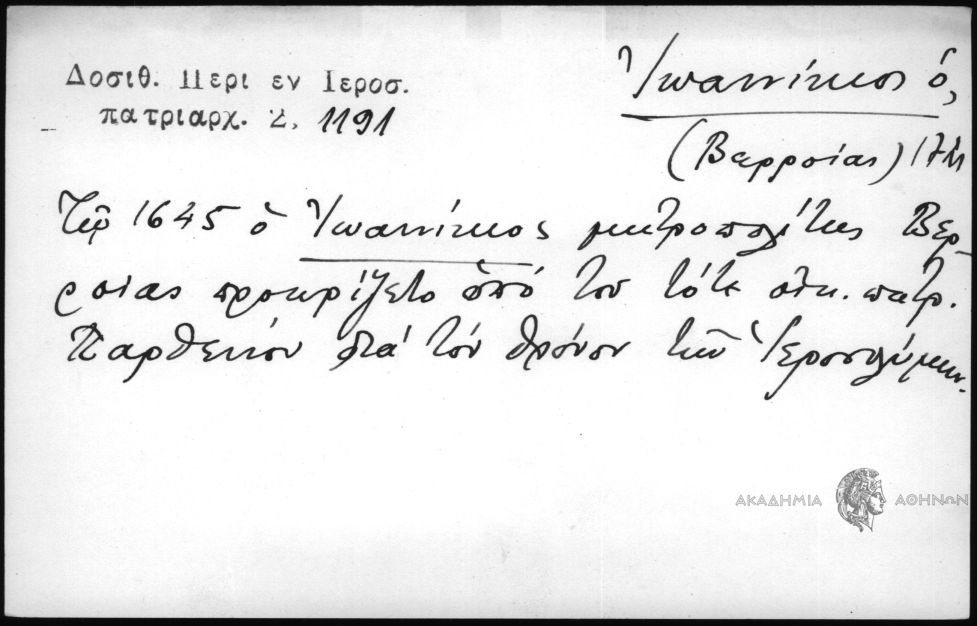 Δοσιθ. Περι εν Ιεροσ.
πατριαρχ. Σ, 1191
Ἰωαννίκιος ὁ,
(Βερροίας) 17
Τῷ 1645 ὁ Ἰωαννίκιος μητροπολίτης Βερ-
ροίας προεκρίζετο ὑπό του τότε οἰκ. πατρ.
Παρθενίου διά τόν θρόνον τῶν Ἱεροσολύμων.
ΑΚΑΔΗΜΙΑ ΑΘΗΝΩΝ